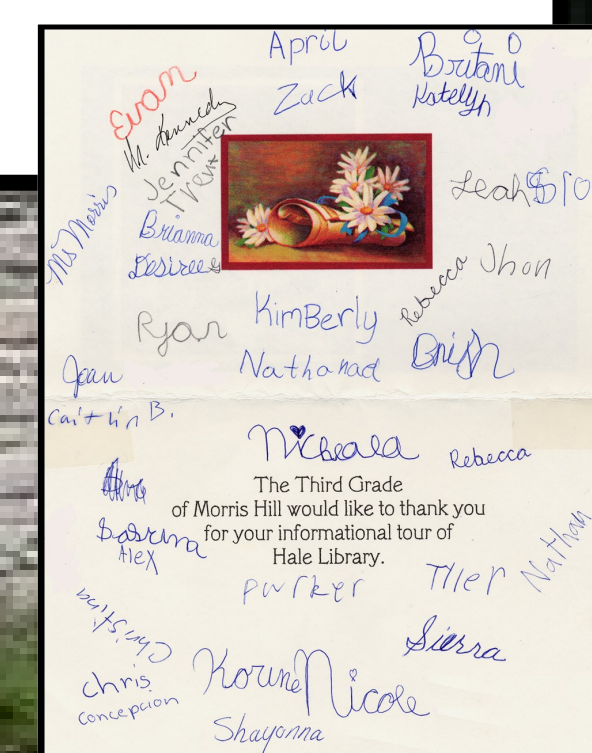 April
Britani
Zack
Katelyn
Evan
M. Kennedy
Jennifer
Trent
Leah $10
Ms Morris
Brianna
Desiree
Rebecca
Jhon
KimBerly
Ryan
Nathanad
Joan
Caitlin B.
Nicheala
Rebecca
The Third Grade
of Morris Hill would like to thank you
for your informational tour of
Hale Library.
Sabrina
Alex
Nathan
Tyler
Parker
Christina
Sierra
Chris
Concepcion
Korine
Nicole
Shayanna